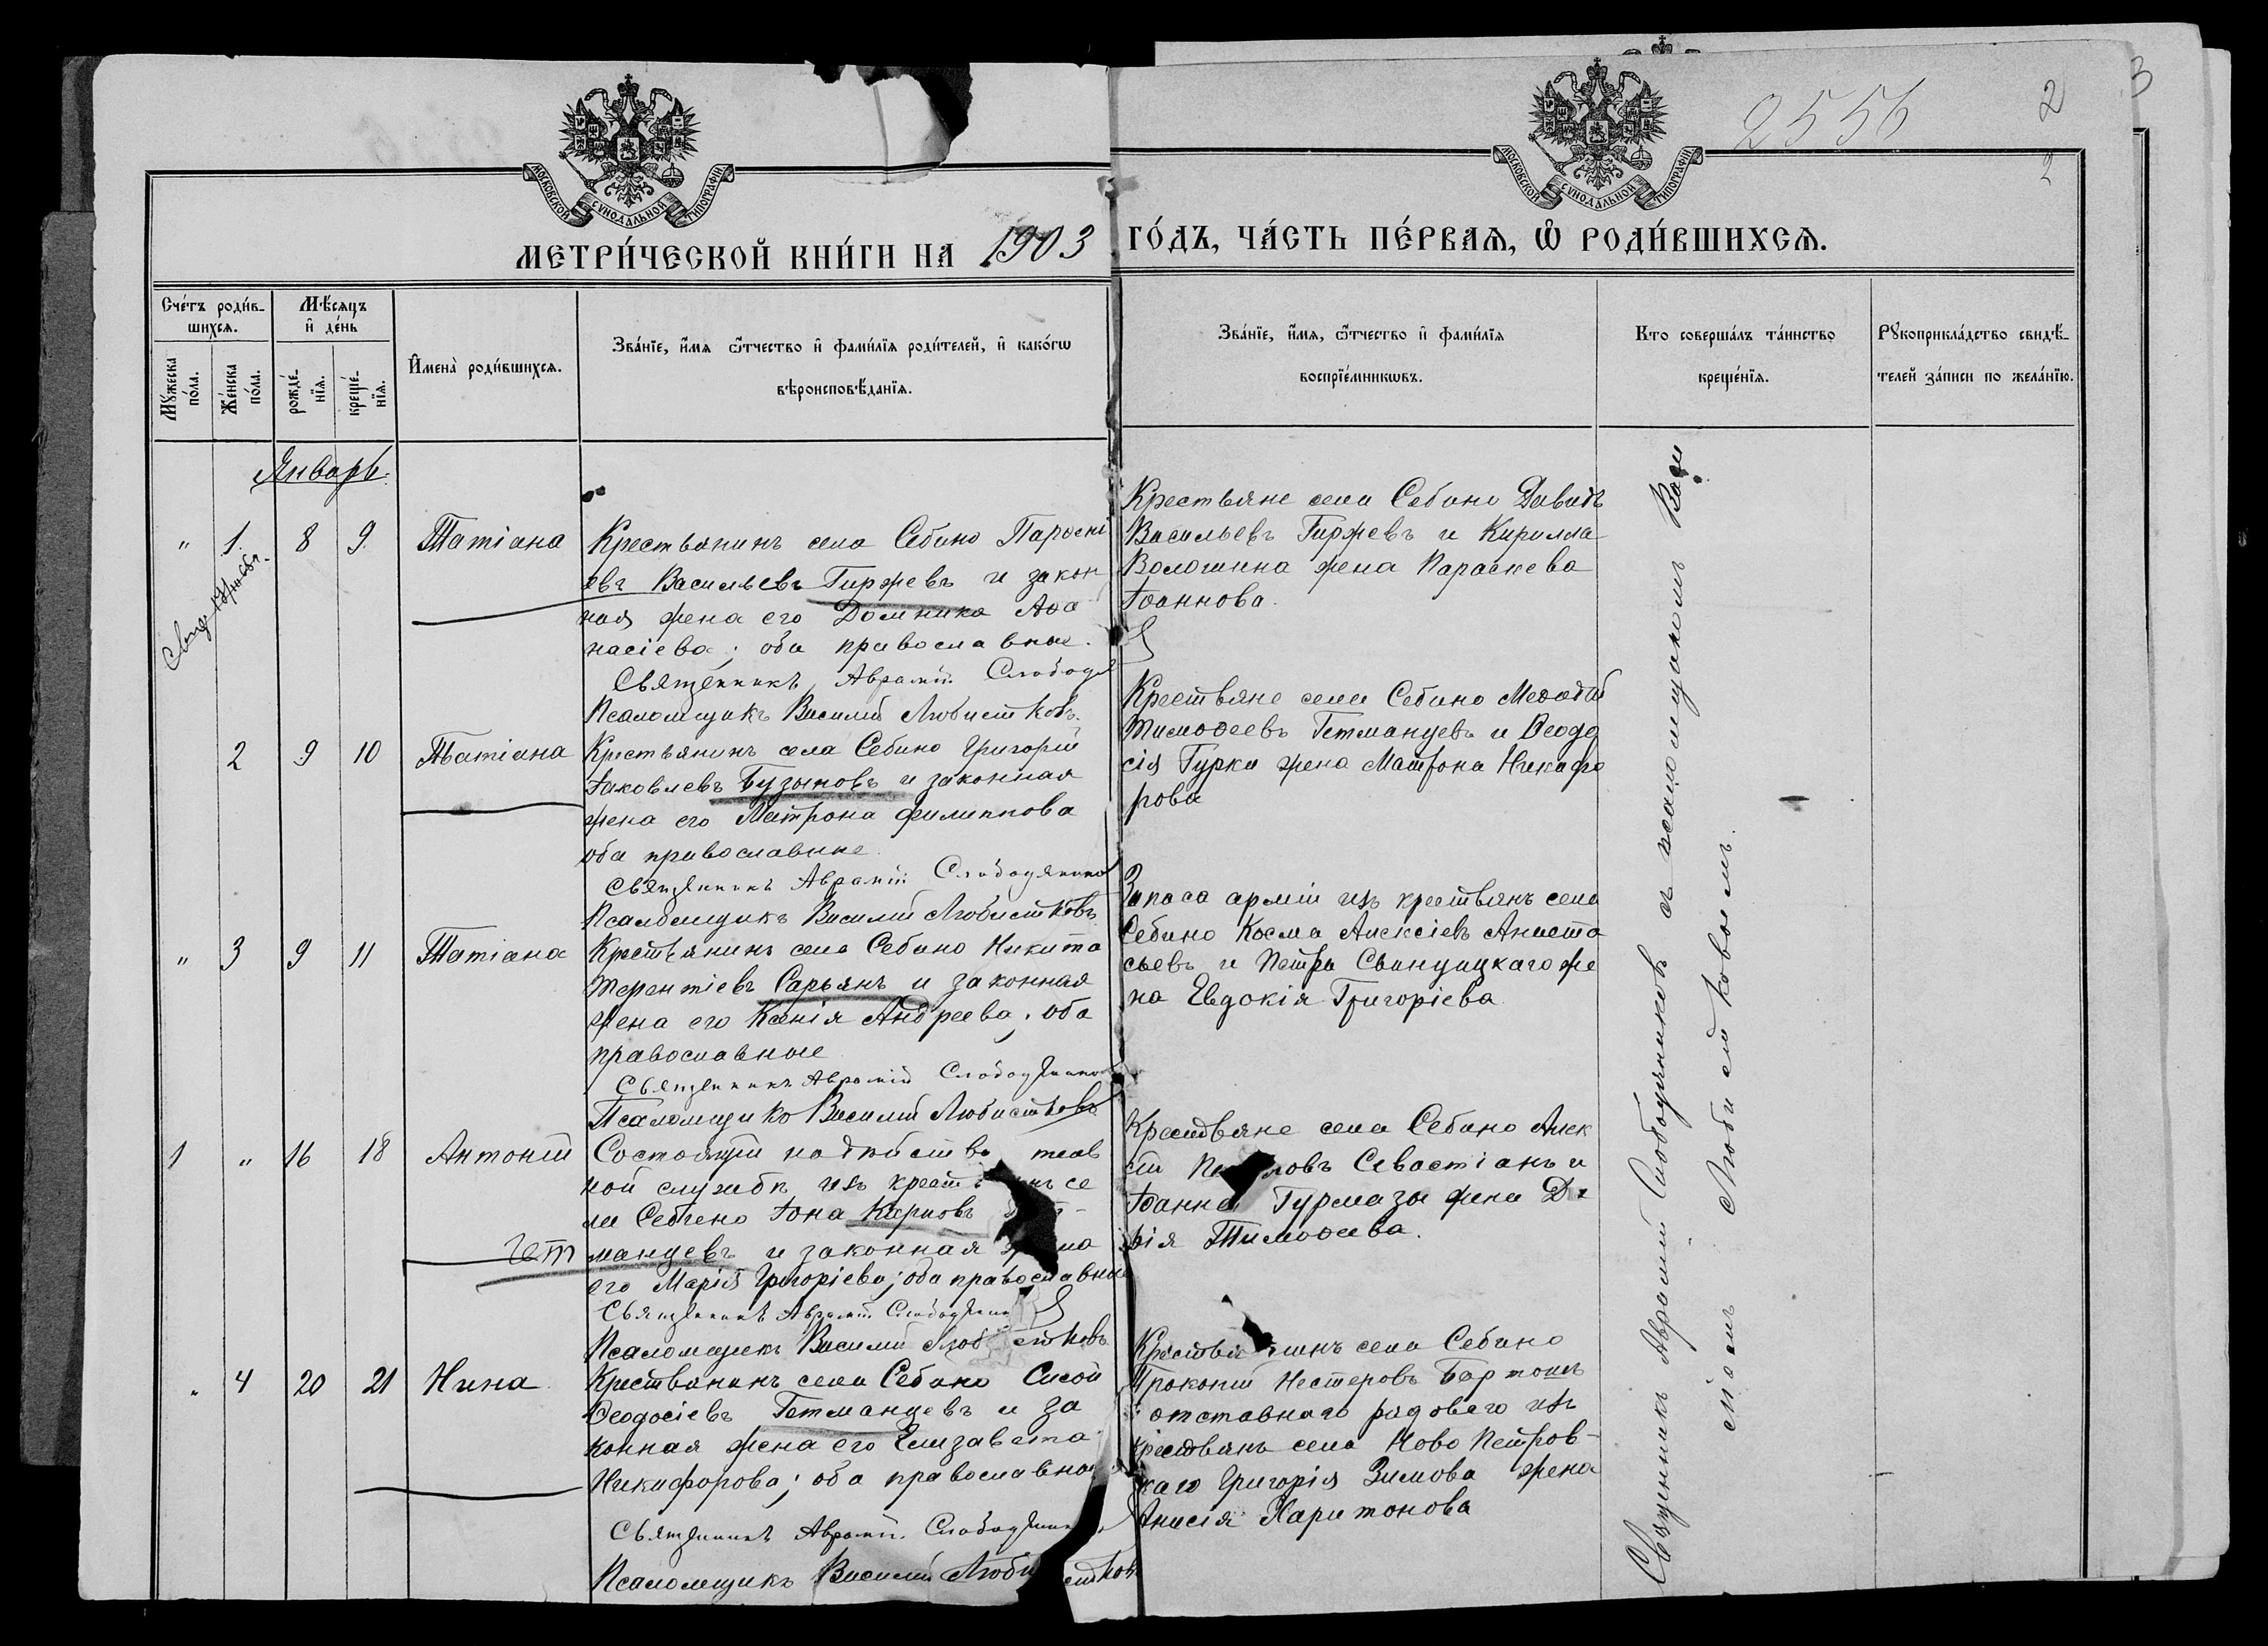 2556
2
3
2
МОСКОВСКОЙ СѴНОДАЛЬНОЙ ТИПОГРАФІИ
МОСКОВСКОЙ СѴНОДАЛЬНОЙ ТИПОГРАФІИ
МЕТРИ́ЧЕСКОЙ КНИ́ГИ НА 1903 ГО́ДЪ, ЧА́СТЬ ПЕ́РВАѦ, Ѽ РОДИ́ВШИХСѦ.
Сче́тъ роди́в-
шихсѧ.
Мꙋ́жеска
по́ла.
Же́нска
по́ла.
Мѣ́сѧцъ
и҆ де́нь
рожде́-
нїѧ.
креще́-
нїѧ.
И҆мена̀ роди́вшихсѧ.
Зва́нїе, и҆́мѧ ѻ҆́тчество и҆ фами́лїѧ роди́телей, и҆ како́гѡ
вѣроисповѣ́данїѧ.
Зва́нїе, и҆́мѧ, ѻ҆́тчество и҆ фами́лїѧ
воспрїе́мникѡвъ.
Кто соверша́лъ та́инство
креще́нїѧ.
Рꙋкоприкла́дство свидѣ́-
телей за́писи по жела́нїю.
Январь.
" 1. 8 9. Татіана
Крестьянинъ села Себино Пароскі
евъ Васильевъ Гиржевъ и закон
ная жена его Домника Аѳа
насіева; оба православные.
Священникъ Аврамій Слободя
Псаломщикъ Василій Любистковъ.
Крестьяне села Себино Давидъ
Васильевъ Гиржевъ и Кирилла
Волошина жена Параскева
Іоаннова.
2 9 10 Татіана
Крестьянинъ села Себино Григорій
Іаковлевъ Бузыновъ и законная
жена его Матрона Филиппова
оба православные.
Священникъ Аврамій Слободяник
Псаломщикъ Василій Любистковъ
Крестьяне села Себино Меѳодій
Тимоѳеевъ Гетманцевъ и Ѳеодо
сія Гурки жена Матрона Никифо
рова
" 3 9 11 Татіана
Крестьянинъ села Себино Никита
Терентіевъ Сарьянъ и законная
жена его Ксенія Андреева; оба
православные
Священникъ Аврамій Слободяник
Псаломщикъ Василій Любистковъ
Запаса арміи изъ крестьянъ села
Себино Косма Алексіевъ Анаста
сьевъ и Петра Свинцицкаго же
на Евдокія Григоріева
1 " 16 18 Антоній
Состоящій на дѣйстви тель
ной службѣ изъ крестьянъ се
ла Себино Іона Карповъ
Гет манцевъ и законная жена
его Марія Григоріева; оба православные
Священникъ Аврамій Слободяник
Псаломщикъ Василій Любистковъ
Крестьяне села Себино Алек
сій Севастіанъ и
Іоанна Гурмазы жена Да
рія Тимоѳеева.
" 4 20 21 Нина
Крестьянинъ села Себино Сисой
Ѳеодосіевъ Гетманцевъ и за
конная жена его Елизавета
Никифорова; оба православные
Священникъ Аврамій Слободяник
Псаломщикъ Василій Любистковъ
Крестьянинъ села Себино
Прокопій Нестеровъ Бартошъ
и отставного рядового изъ
крестьянъ села Ново Петров-
скаго Григорія Зимова жена
Анисія Харитонова
Священникъ Аврамій Слободяниковъ съ псаломщикомъ Васи
ліемъ Любистковымъ.